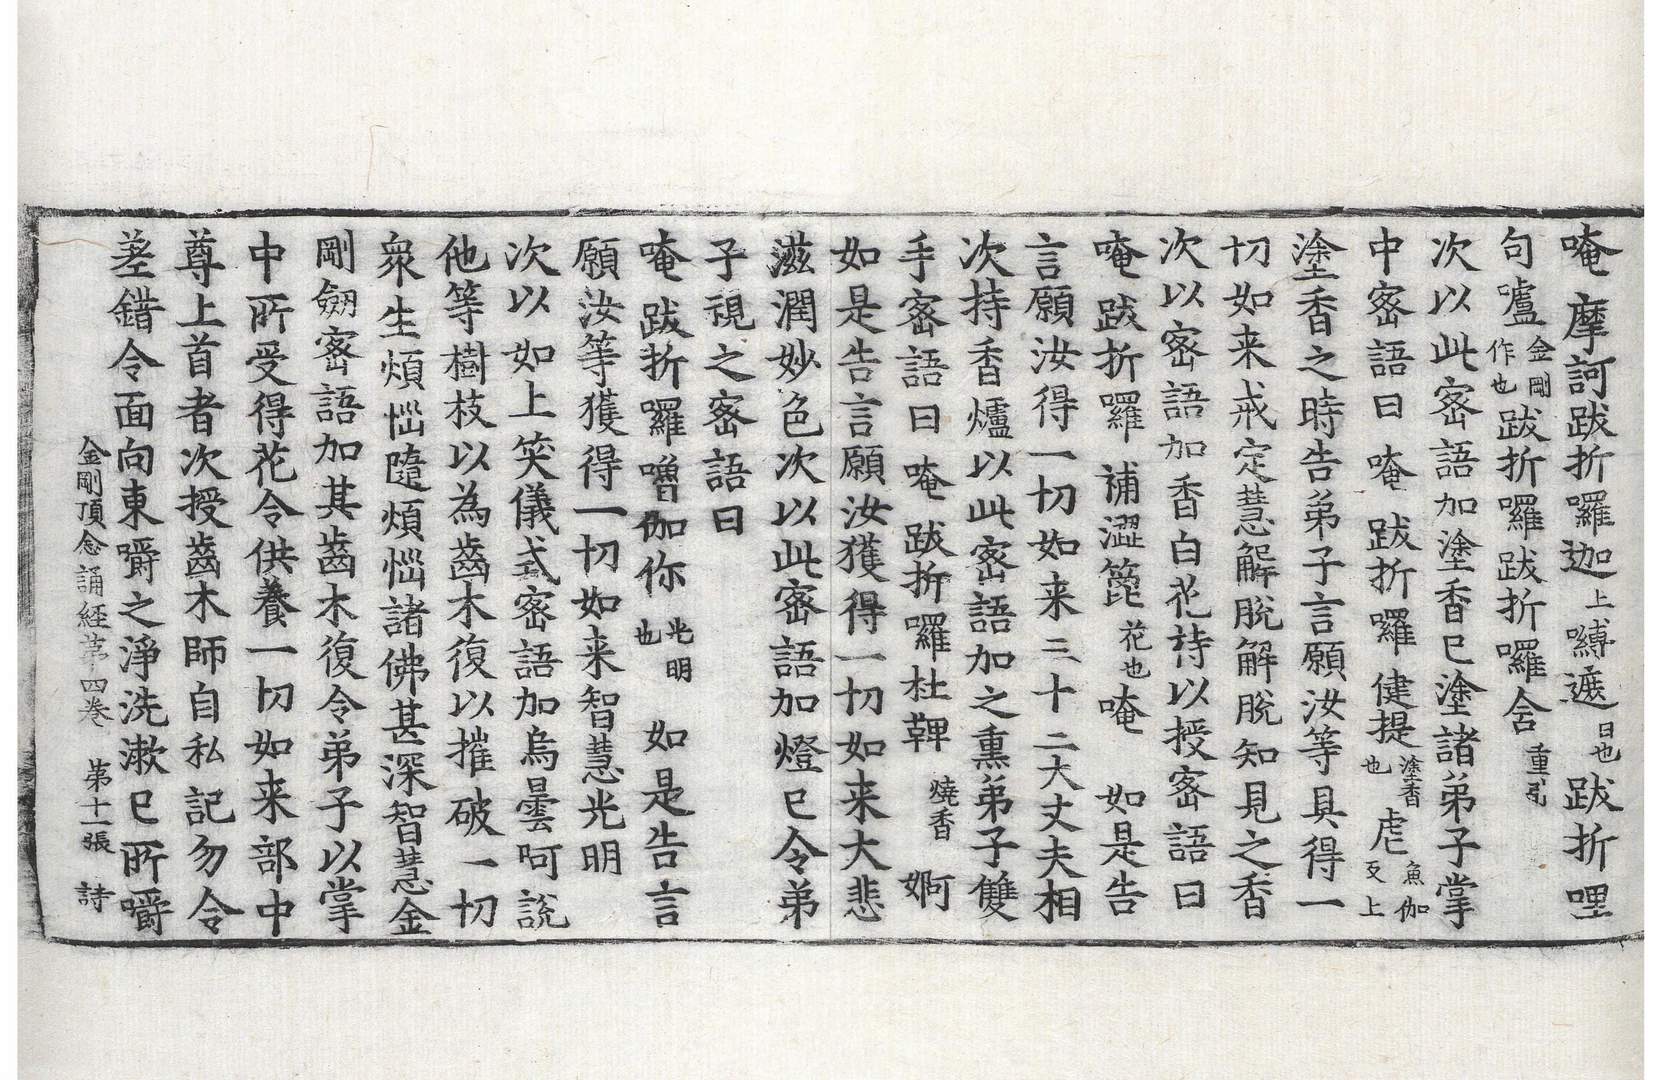 唵摩訶跋折囉迦上嚩遮日也跋折哩
句嚧金剛作也跋折囉跋折囉舍重引
次以此密語加塗香已塗諸弟子掌
中密語曰唵跋折囉健提塗香也虐魚伽反上
塗香之時告弟子言願汝等具得一
切如来戒定慧解脫解脫知見之香
次以密語加香白花持以授密語曰
唵跋折囉補澀篦花也唵如是告
言願汝得一切如来三十二大丈夫相
次持香爐以此密語加之熏弟子雙
手密語曰唵跋折囉杜鞞燒香婀
如是告言願汝獲得一切如来大悲
滋潤妙色次以此密語加燈已令弟
子視之密語曰
唵跋折囉嚕伽你光明也如是告言
願汝等獲得一切如来智慧光明
次以如上笑儀式密語加烏曇呵說
他等樹枝以為齒木復以摧破一切
衆生煩惱隨煩惱諸佛甚深智慧金
剛劒密語加其齒木復令弟子以掌
中所受得花令供養一切如来部中
尊上首者次授齒木師自私記勿令
差錯令面向東嚼之淨洗漱已所嚼
金剛頂念誦經第四卷 第十一張 詩